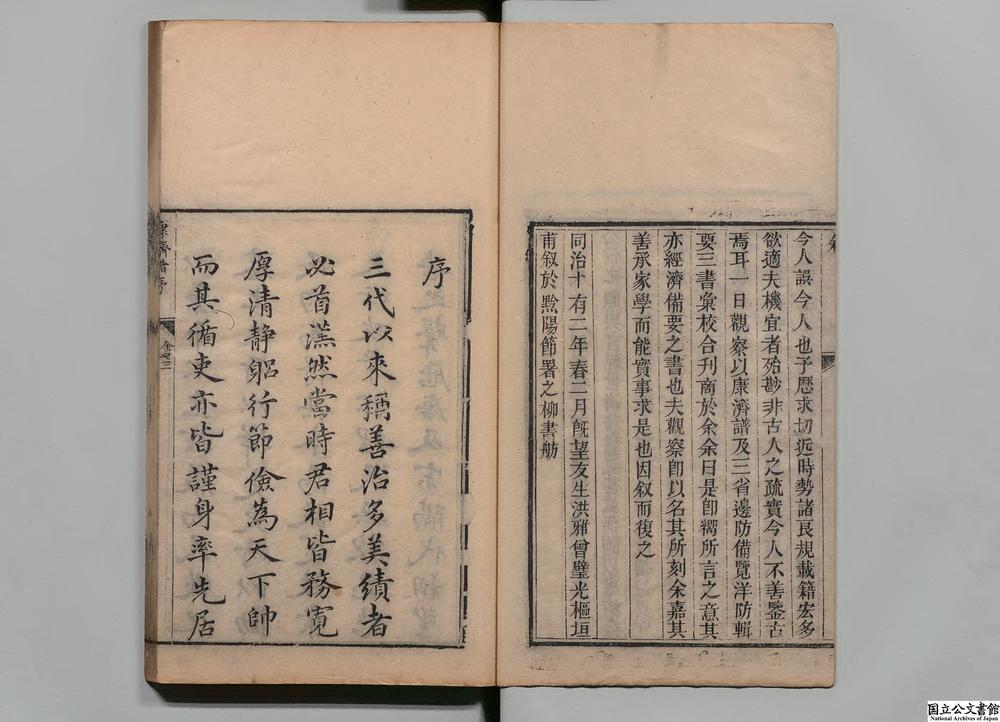 今人誤今人也予歷求切近時勢諸良規載籍实多
欲適夫機宜者殆尠非古人之疏實今人不善鑒古
焉耳一日觀察以康濟譜及三省邊防備覽洋防輯
要三書彙校合刊商於余余曰是卽嚮所言之意其
亦經濟備要之書也夫觀察卽以名其所刻余嘉其
善承家學而能實事求是也因叙而復之
同治十有二年春二月旣望友生洪雅曾璧光樞垣
甫叙於黔陽節署之柳書舫
序
三代以來稱善治多美績者
必首漢然當時君相皆務寬
厚清静躬行節儉為天下帥
而其循吏亦皆謹身率先居
康濟譜序
国立公文書館
National Archives of Japan